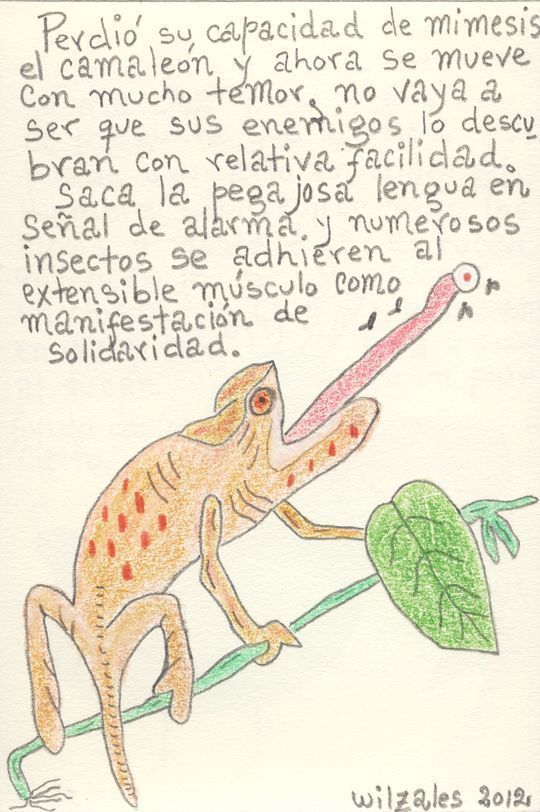 Perdió su capacidad de mimesis
el camaleón y ahora se mueve
con mucho temor, no vaya a
ser que sus enemigos lo descu
bran con relativa facilidad.
Saca la pegajosa lengua en
señal de alarma y numerosos
insectos se adhieren al
extensible músculo como
manifestación de
solidaridad.
wilzales 2012